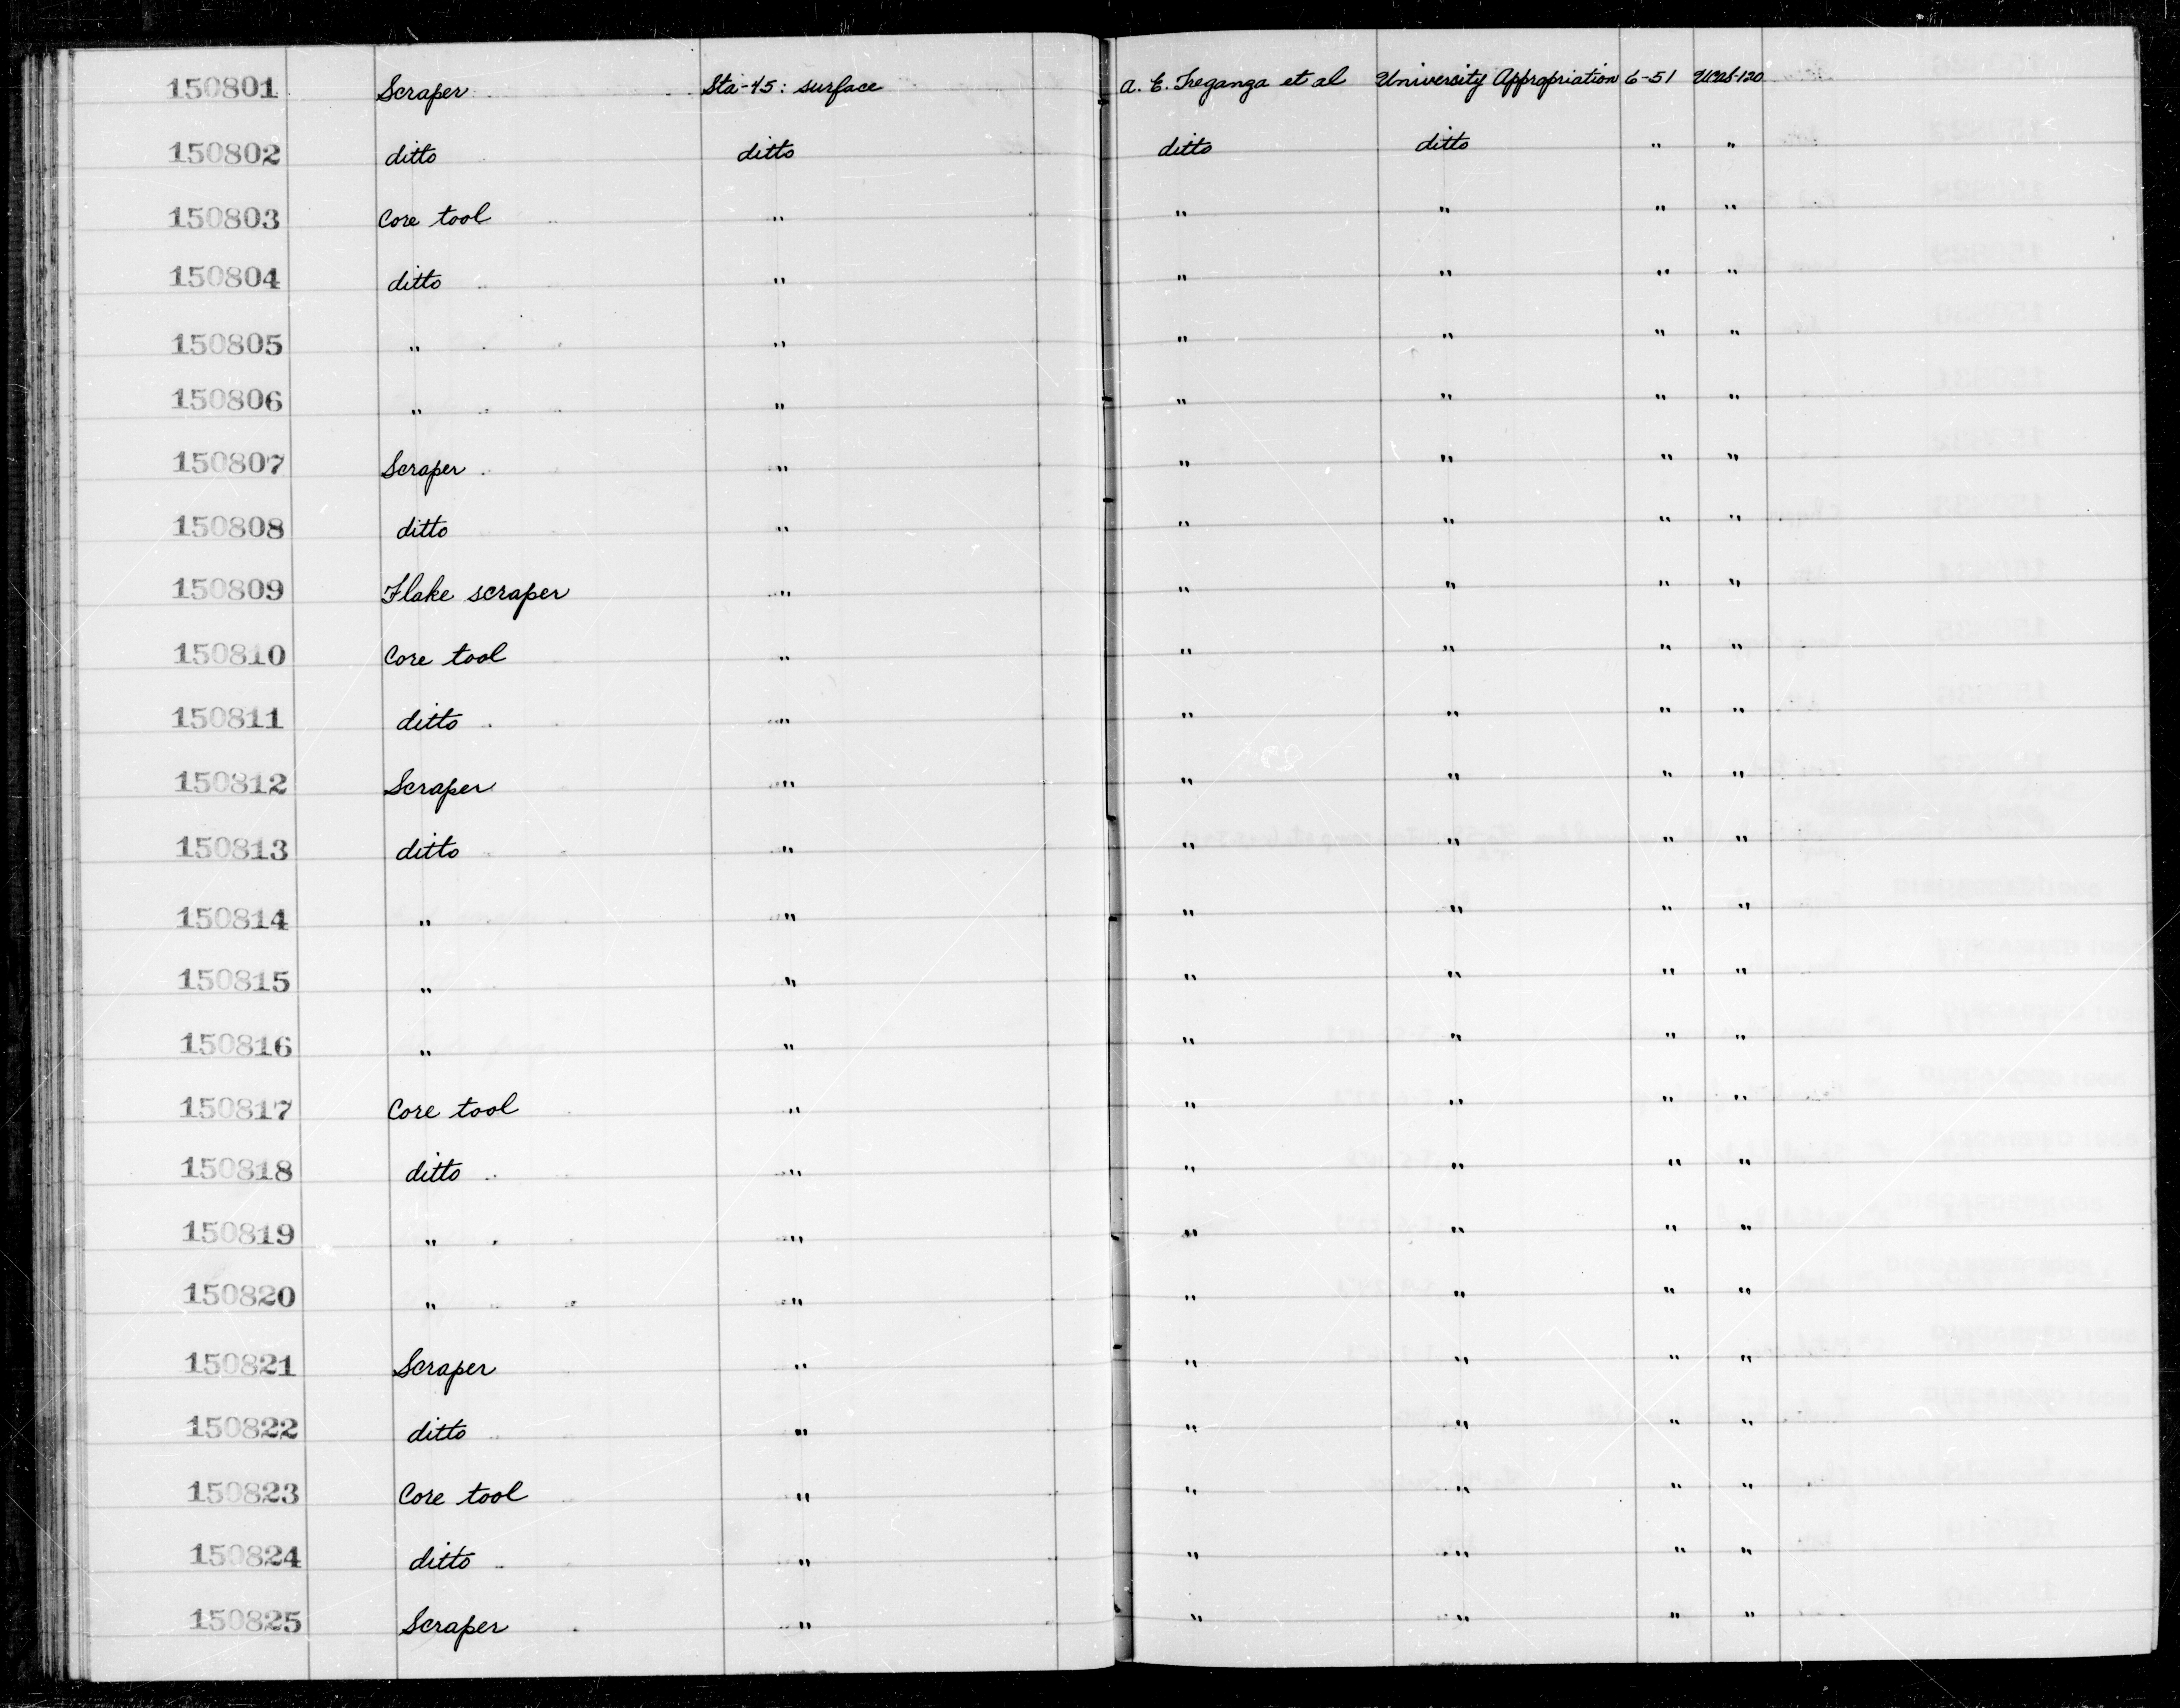 150801 Scraper Sta-45: surface A. E. Treganza et al University Appropriation 6-51 UCAS-120
150802 ditto ditto ditto ditto " "
150803 Core tool " " " " "
150804 ditto " " " " "
150805 " " " " " "
150806 " " " " " "
150807 Scraper " " " " "
150808 ditto " " " " "
150809 Flake scraper " " " " "
150810 Core tool " " " " "
150811 ditto " " " " "
150812 Scraper " " " " "
150813 ditto " " " " "
150814 " " " " " "
150815 " " " " " "
150816 " " " " " "
150817 Core tool " " " " "
150818 ditto " " " " "
150819 " " " " " "
150820 " " " " " "
150821 Scraper " " " " "
150822 ditto " " " " "
150823 Core tool " " " " "
150824 ditto " " " " "
150825 Scraper " " " " "